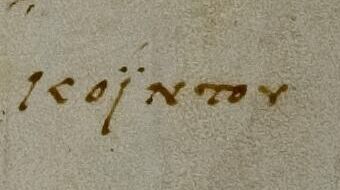 κοϊντου